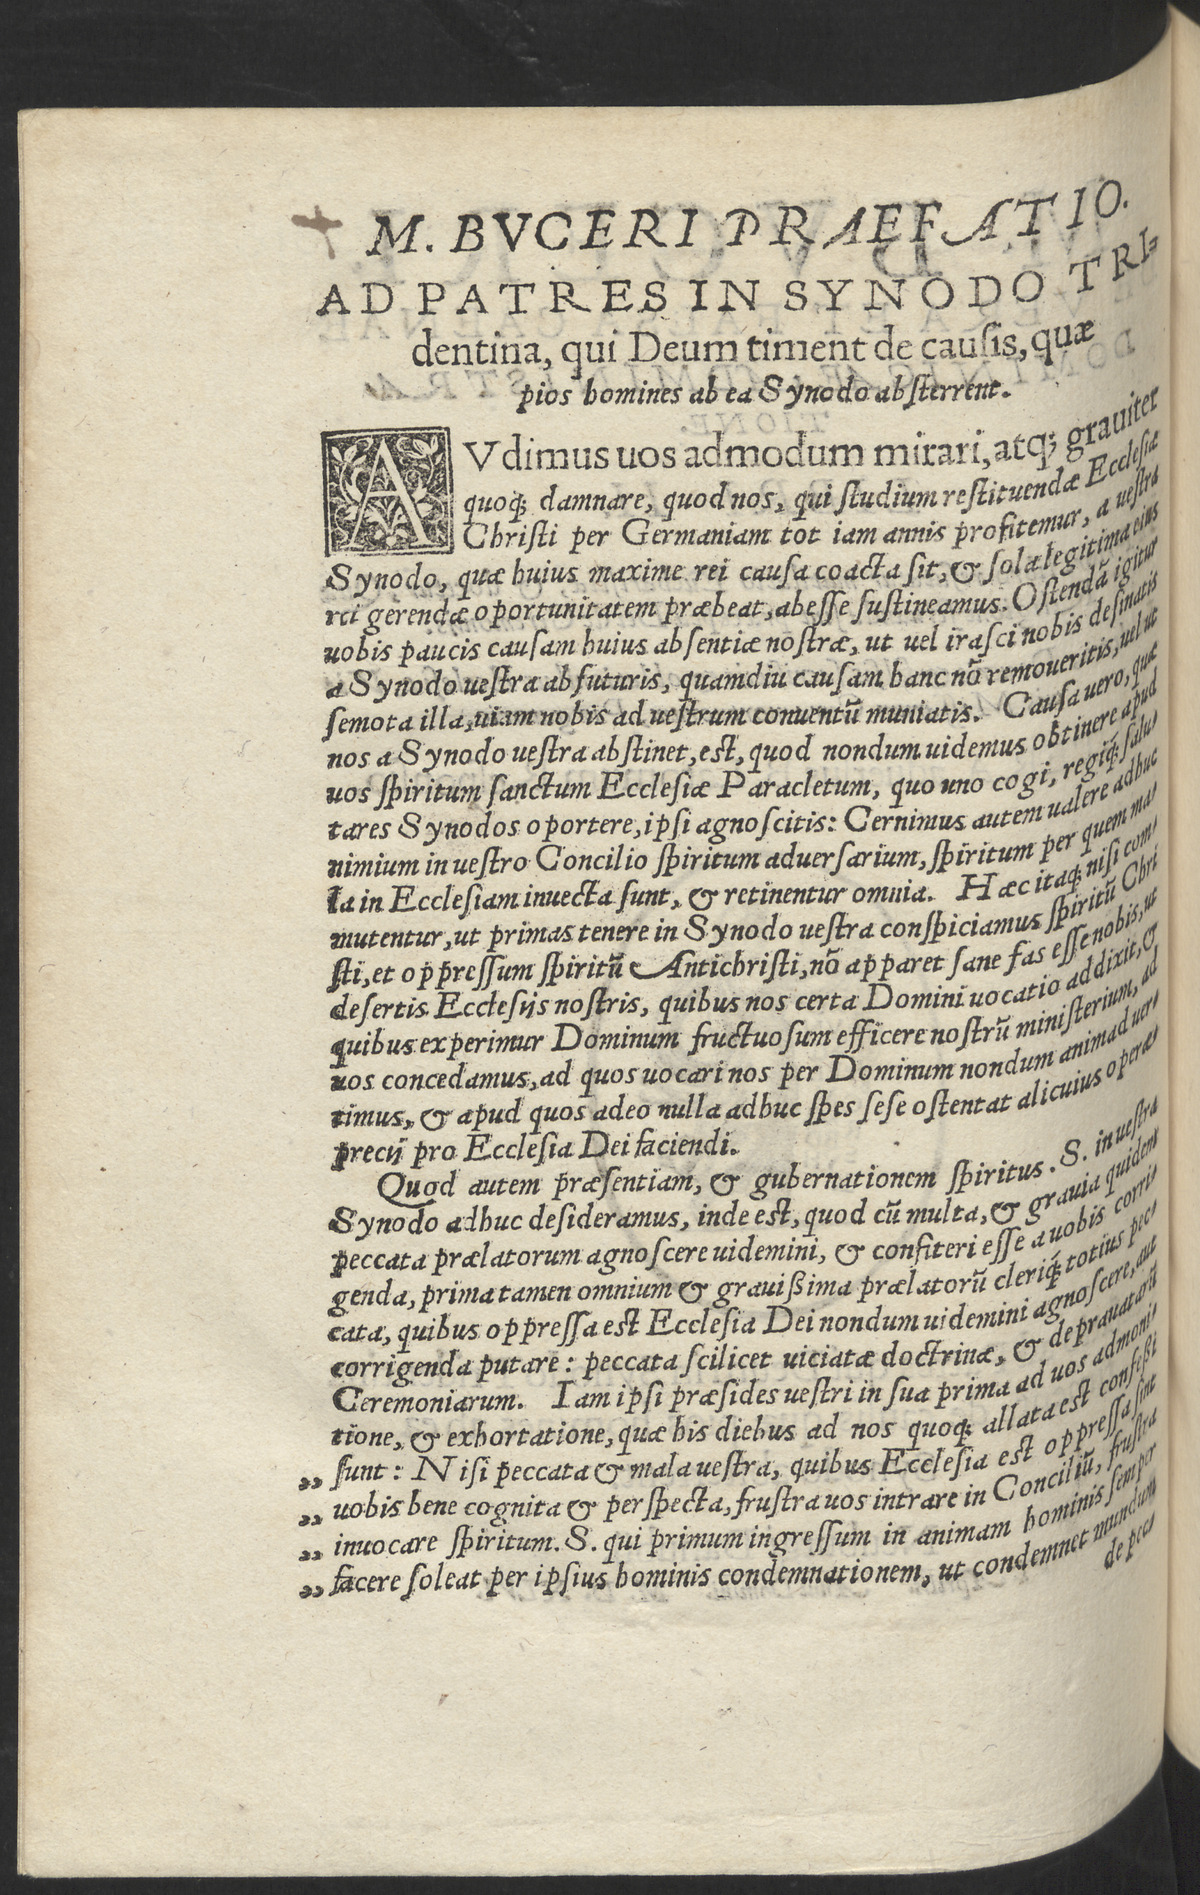 M. BVCERI PRAEFATIO.
AD PATRES IN SYNODO TRI=
dentina, qui Deum timent de causis, quæ
pios homines ab ea Synodo absterrent.
AVdimus uos admodum mirari, atq; grauiter
quoq; damnare, quod nos, qui studium restituendæ Ecclesiæ
Christi per Germaniam tot iam annis profitemur, a uestra
Synodo, quæ huius maxime rei causa coacta sit, & sola legitima eius
rei gerendæ oportunitatem præbeat, abesse sustineamus. Ostendā igitur
uobis paucis causam huius absentiæ nostræ, ut uel irasci nobis desinatis
a Synodo uestra abfuturis, quamdiu causam hanc nō remoueritis, uel ut
semota illa, uiam nobis ad uestrum conuentū muniatis. Causa uero, quæ
nos a Synodo uestra abstinet, est, quod nondum uidemus obtinere apud
uos spiritum sanctum Ecclesiæ Paracletum, quo uno cogi, regiq; salu/
tares Synodos oportere, ipsi agnoscitis: Cernimus autem ualere adhuc
nimium in uestro Concilio spiritum aduersarium, spiritum per quem ma/
la in Ecclesiam inuecta sunt, & retinentur omnia. Hæc itaq; nisi com/
mutentur, ut primas tenere in Synodo uestra conspiciamus spiritū Chri
sti, et oppressum spiritū Antichristi, nō apparet sane fas esse nobis, ut
desertis Ecclesijs nostris, quibus nos certa Domini uocatio addixit, &
quibus experimur Dominum fructuosum efficere nostrū ministerium, ad
uos concedamus, ad quos uocari nos per Dominum nondum animaduer/
timus, & apud quos adeo nulla adhuc spes sese ostentat alicuius operæ/
precij pro Ecclesia Dei faciendi.
Quod autem præsentiam, & gubernationem spiritus. S. in uestra
Synodo adhuc desideramus, inde est, quod cū multa, & grauia quidem
peccata prælatorum agnoscere uidemini, & confiteri esse a uobis corri/
genda, prima tamen omnium & grauißima prælatorū cleriq; totius pec/
cata, quibus oppressa est Ecclesia Dei nondum uidemini agnoscere, aut
corrigenda putare: peccata scilicet uiciatæ doctrinæ, & deprauatarū
Ceremoniarum. Iam ipsi præsides uestri in sua prima ad uos admoni/
tione, & exhortatione, quæ his diebus ad nos quoq; allata est confeßi
„ sunt: Nisi peccata & mala uestra, quibus Ecclesia est oppressa sint
„ uobis bene cognita & perspecta, frustra uos intrare in Conciliū, frustra
„ inuocare spiritum. S. qui primum ingressum in animam hominis semper
„ facere soleat per ipsius hominis condemnationem, ut condemnet mundum
de pec/